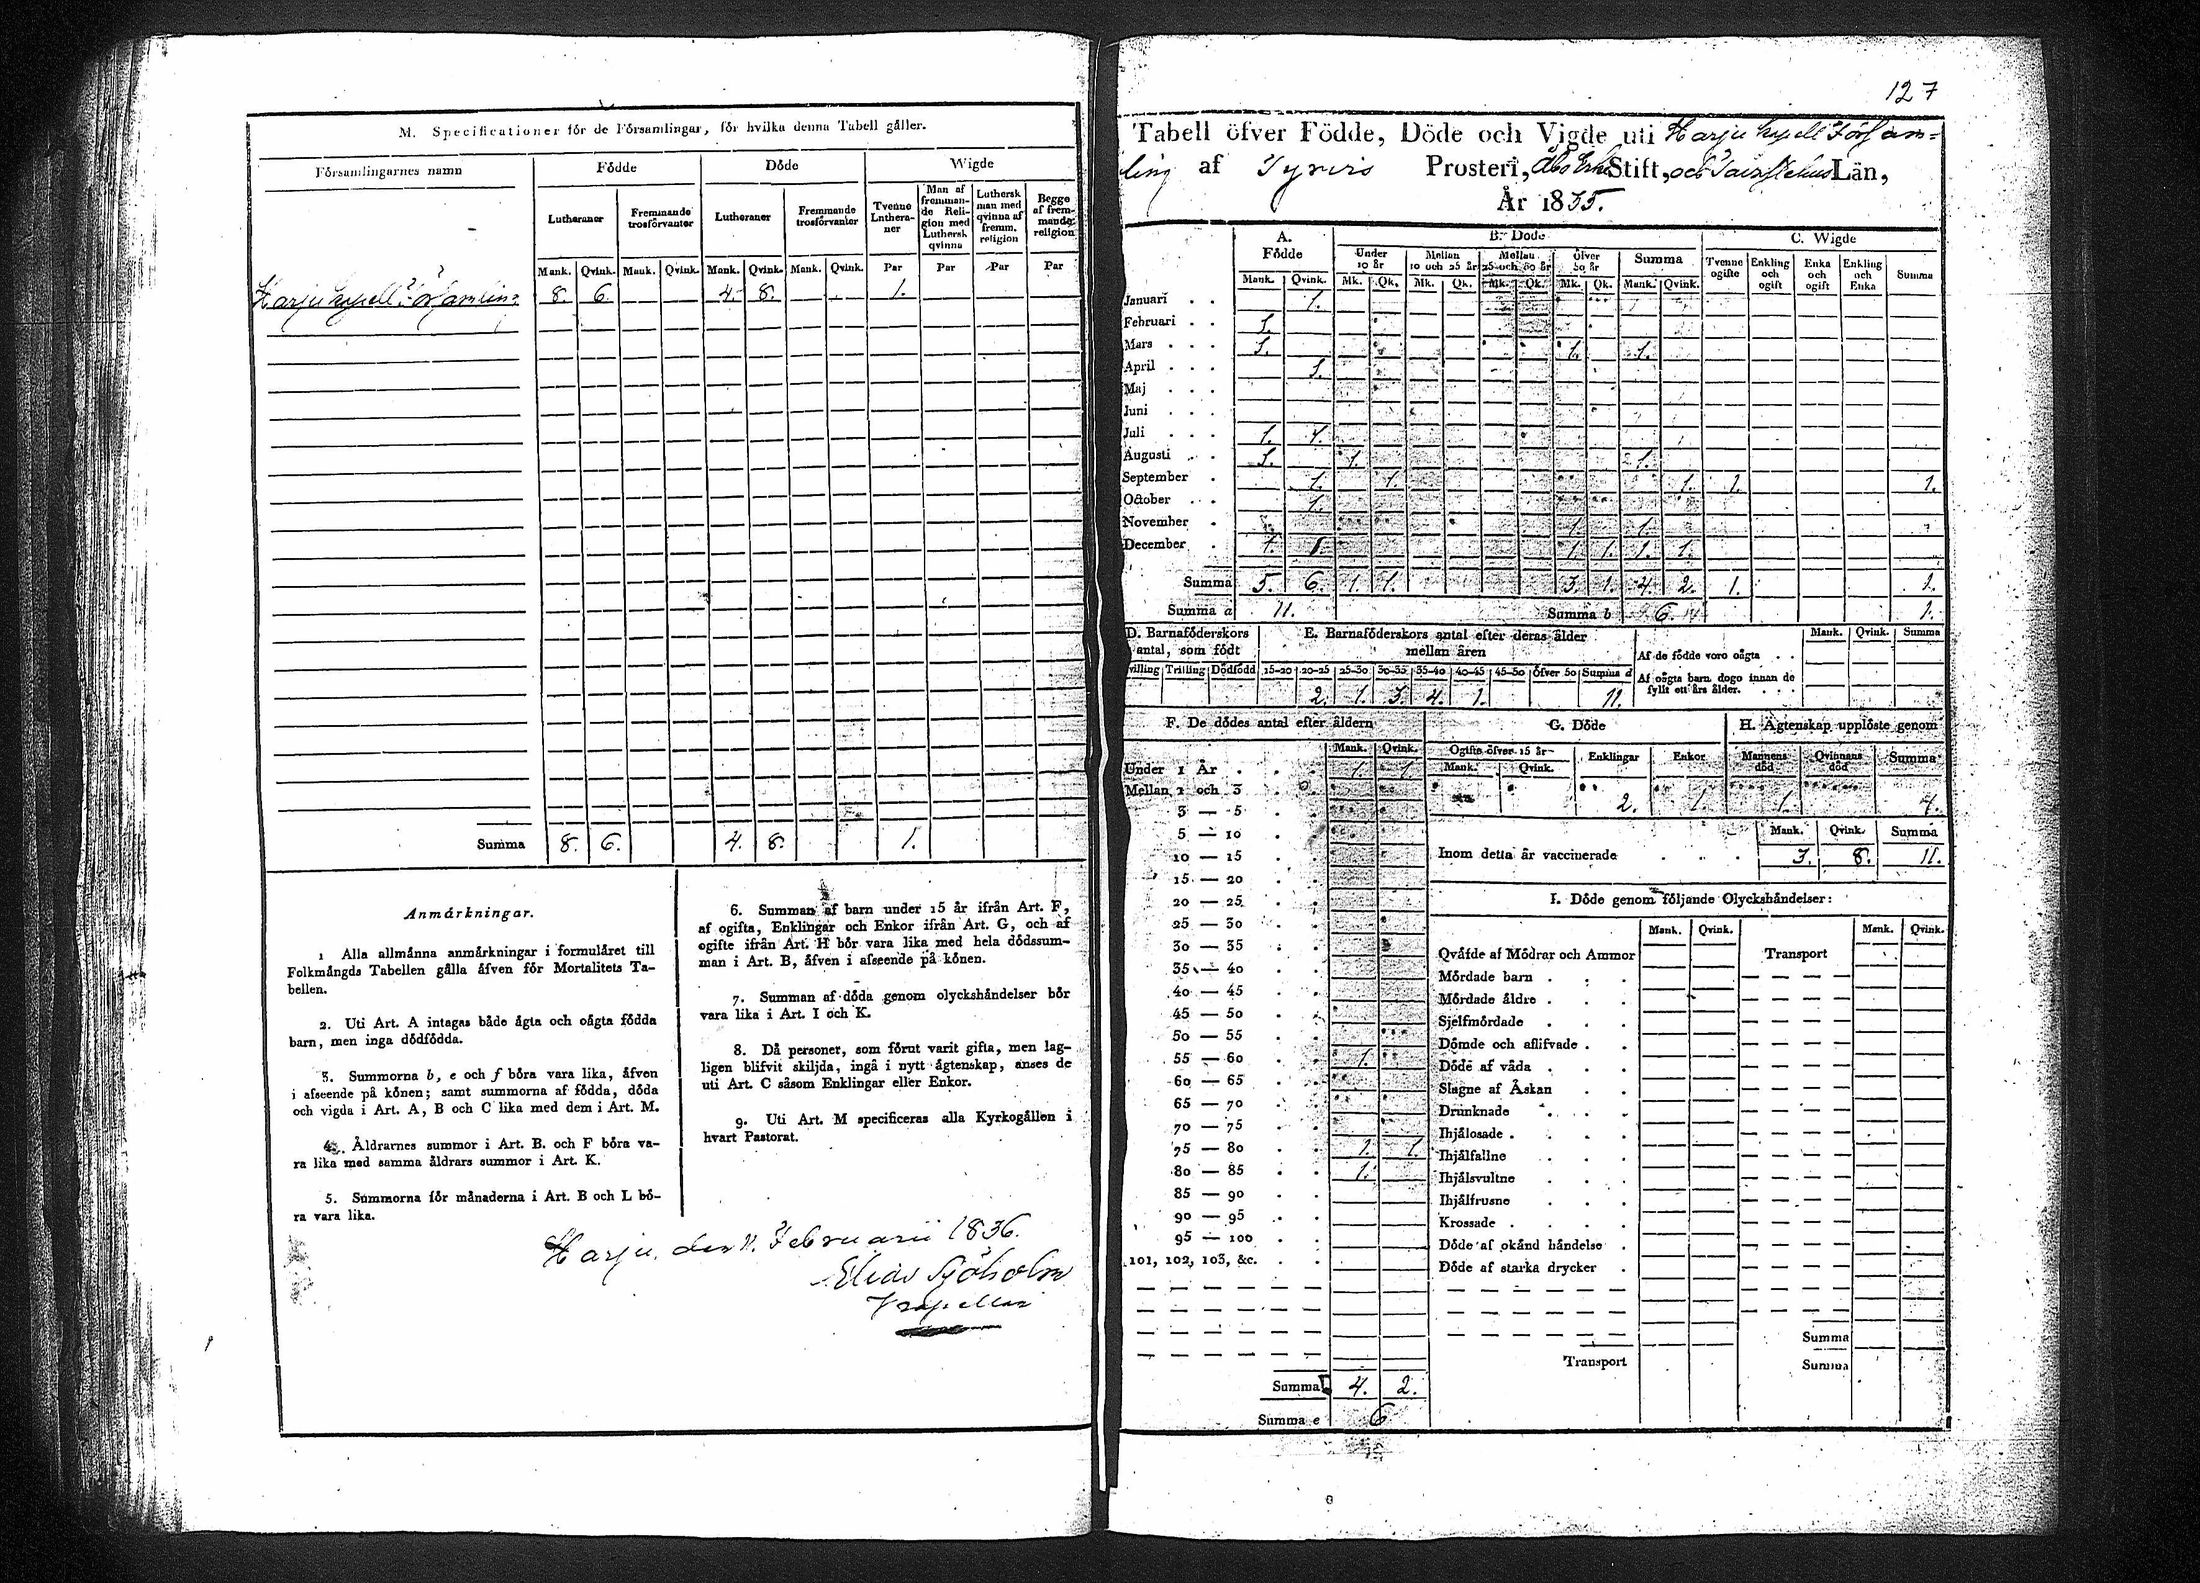 M. Specificationer för de Församlingar, för hvilka denna Tabell gäller.
Församlingarnes namn | Födde | Döde | Wigde
Lutheraner | Fremmande trosförvanter | Lutheraner | Fremmande trosförvanter | Tvenne Lutheraner | Man af fremmande Religion med Luthersk qvinna | Luthersk man med qvinna af fremm. religion | Begge af fremmande religion
Mank. | Qvink. | Mank. | Qvink. | Mank. | Qvink. | Mank. | Qvink. | Par | Par | Par | Par
Harju Capell Församling | 8. | 6. | 4. | 8. | 1.
Summa | 8. | 6. | 4. | 8. | 1.
Anmärkningar.
1 Alla allmänna anmärkningar i formuläret till
Folkmängds Tabellen gälla äfven för Mortalitets Ta-
bellen.
2. Uti Art. A intagas både ägta och oägta födda
barn, men inga dödfödda.
3. Summorna b, e och f böra vara lika, äfven
i afseende på könen; samt summorna af födda, döda
och vigda i Art. A, B och C lika med dem i Art. M.
4. Åldrarnes summor i Art. B. och F böra va-
ra lika med samma åldrars summor i Art. K.
5. Summorna för månaderna i Art. B och L bö-
ra vara lika.
6. Summan af barn under 15 år ifrån Art. F,
af ogifta, Enklingar och Enkor ifrån Art. G, och af
ogifte ifrån Art. H bör vara lika med hela dödssum-
man i Art. B, äfven i afseende på könen.
7. Summan af döda genom olyckshändelser bör
vara lika i Art. I och K.
8. Då personer, som förut varit gifta, men lag-
ligen blifvit skiljda, ingå i nytt ägtenskap, anses de
uti Art. C såsom Enklingar eller Enkor.
9. Uti Art. M specificeras alla Kyrkogällen i
hvart Pastorat.
Harju, den 11. Februarii 1836.
Elias Sjöholm
Capellan
127
Tabell öfver Födde, Döde och Vigde uti Harju Capell Försam-
ling af Tyrvis Prosteri, Åbo Erke Stift, och Tavastehus Län,
År 1835.
A. Födde | B. Döde | C. Wigde
Under 10 år | Mellan 10 och 25 år | Mellan 25 och 50 år | Öfver 50 år | Summa | Tvenne ogifte | Enkling och ogift | Enka och ogift | Enkling och Enka | Summa
Mank. | Qvink. | Mk. | Qk. | Mk. | Qk. | Mk. | Qk. | Mk. | Qk. | Mank. | Qvink.
Januari . . 1.
Februari . . 1.
Mars . . . 1. 1. 1.
April . . . 1.
Maj . . .
Juni . . .
Juli . . . 1. 1.
Augusti . . 1. 1. 1.
September . 1. 1. 1. 1. 1.
October . . 1.
November . 1. 1.
December . 1. 1. 1. 1. 1. 1.
Summa 5. 6. 1. 1. 3. 1. 4. 2. 1. 1.
Summa a 11. Summa b 6. 1.
D. Barnaföderskors antal, som födt
Tvilling | Trilling | Dödfödd
E. Barnaföderskors antal efter deras ålder mellan åren
15-20 | 20-25 | 25-30 | 30-35 | 35-40 | 40-45 | 45-50 | Öfver 50 | Summa d
2. 1. 3. 4. 1. 11.
Mank. | Qvink. | Summa
Af de födde voro oägta . .
Af oägta barn dogo innan de
fyllt ett års ålder. . . .
F. De dödes antal efter åldern
Mank. | Qvink.
Under 1 År . . 1. 1.
Mellan 1 och 3
3 — 5
5 — 10
10 — 15
15 — 20
20 — 25
25 — 30
30 — 35
35 — 40
40 — 45
45 — 50
50 — 55
55 — 60 . . 1.
60 — 65
65 — 70
70 — 75
75 — 80 . . 1. 1.
80 — 85 . . 1.
85 — 90
90 — 95
95 — 100
101, 102, 103, &c.
Summa 4. 2.
Summa e 6
G. Döde
Ogifte öfver 15 år | Enklingar | Enkor
Mank. | Qvink.
2. 1.
H. Ägtenskap upplöste genom
Mannens död | Qvinnans död | Summa
1. 1.
Mank. | Qvink. | Summa
Inom detta år vaccinerade . . . 3. 8. 11.
I. Döde genom följande Olyckshändelser:
Mank. | Qvink. | Mank. | Qvink.
Qväfde af Mödrar och Ammor | Transport
Mördade barn . . .
Mördade äldre . . .
Sjelfmördade . . .
Dömde och aflifvade . .
Döde af våda . . .
Slagne af Åskan . .
Drunknade . . .
Ihjälosade . . . .
Ihjälfallne . . .
Ihjälsvultne . . .
Ihjälfrusne . . .
Krossade . . . .
Döde af okänd händelse .
Döde af starka drycker .
Summa
Transport | Summa